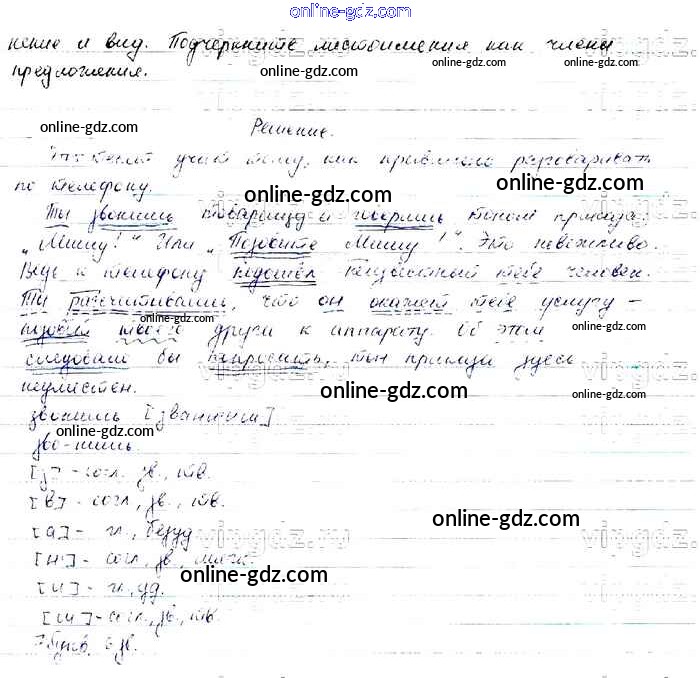 online-gdz.com
нение и вид. Подчеркните местоимения как члены
online-gdz.com online-gdz.com online-gdz.com
предложения.
online-gdz.com
Решение.
учат тому, как правильно разговаривать
online-gdz.com
по телефону.
online-gdz.com
Ты звонишь товарищу и говоришь тоном приказа:
online-gdz.com
„Мишу!" Или „Позовите Мишу!". Это невежливо.
Ведь к телефону подошёл неизвестный тебе человек.
Ты рассчитываешь, что он окажет тебе услугу –
online-gdz.com
позовёт твоего друга к аппарату. Об этом
online-gdz.com
следовало бы попросить, тон приказа здесь
неуместен.
online-gdz.com online-gdz.com
звонишь [званиш]
online-gdz.com
зво-нишь.
[з] - согл., зв., тв.
[в] - согл., зв., тв.
online-gdz.com
[а] - гл., безуд
[н'] - согл., зв., мягк.
online-gdz.com
[и] - гл., уд.
online-gdz.com
[ш] - согл., зв., тв.
7 букв, 6 зв.